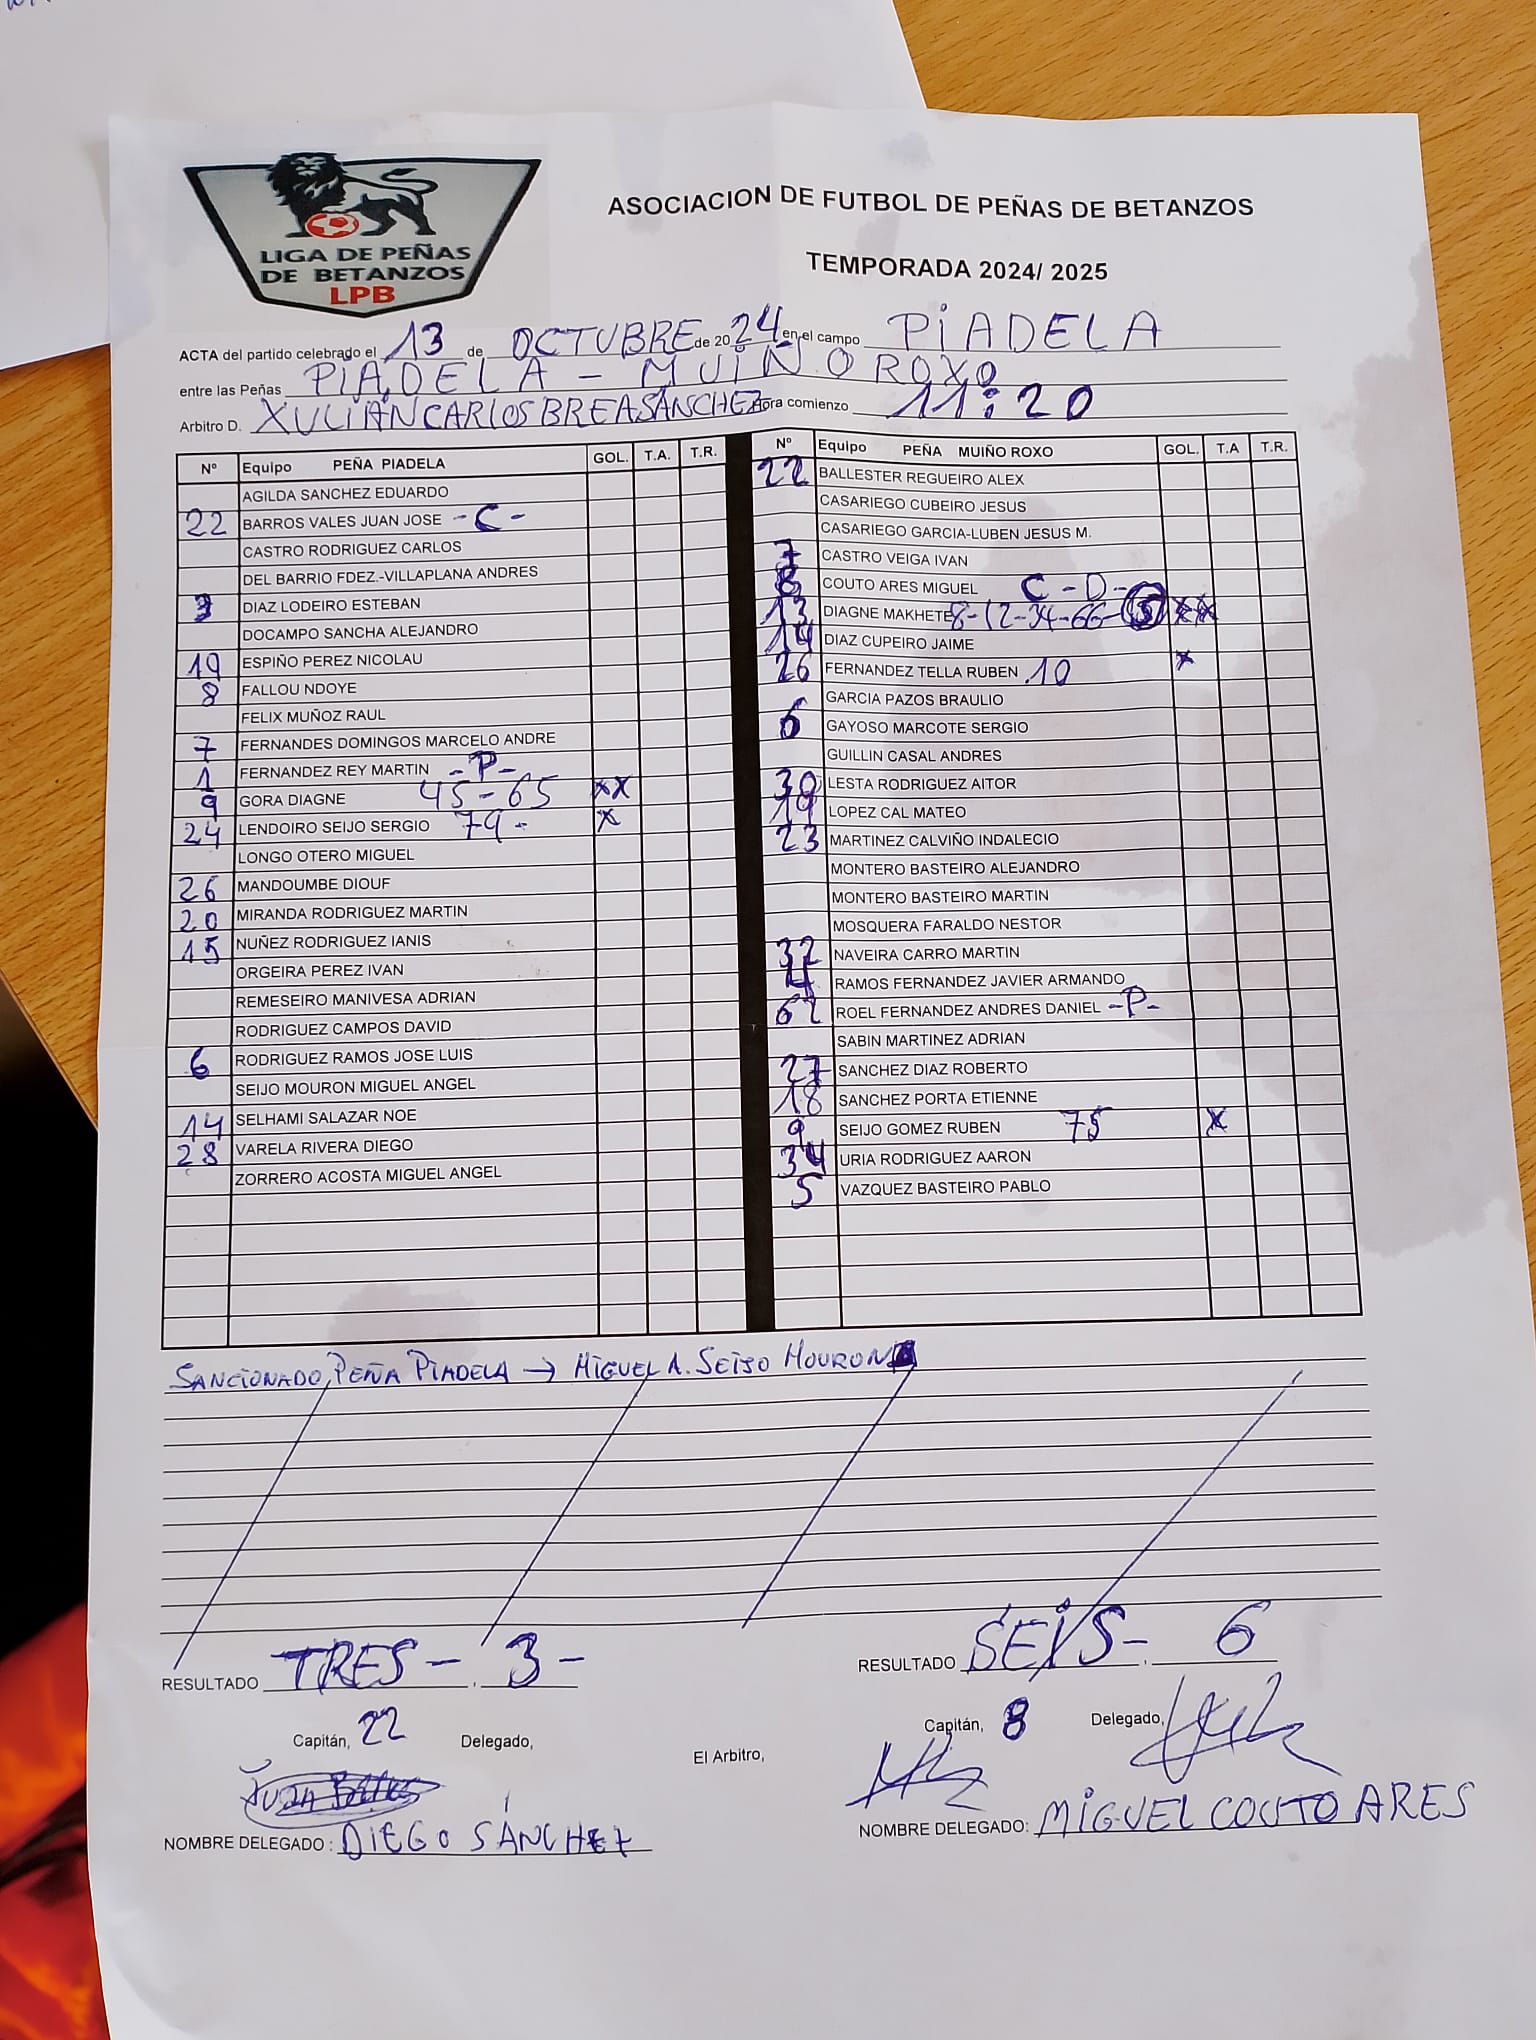 LIGA DE PEÑAS
DE BETANZOS
LPB
ASOCIACION DE FUTBOL DE PEÑAS DE BETANZOS
TEMPORADA 2024/ 2025
ACTA del partido celebrado el 13 de OCTUBRE de 2024 en el campo PIADELA
entre las Peñas PIADELA - MUIÑO ROXO
Arbitro D. XULIÁN CARLOS BREA SÁNCHEZ Hora comienzo 11:20
Nº Equipo PEÑA PIADELA GOL. T.A. T.R.
AGILDA SANCHEZ EDUARDO
22 BARROS VALES JUAN JOSE - C -
CASTRO RODRIGUEZ CARLOS
DEL BARRIO FDEZ.-VILLAPLANA ANDRES
3 DIAZ LODEIRO ESTEBAN
DOCAMPO SANCHA ALEJANDRO
19 ESPIÑO PEREZ NICOLAU
8 FALLOU NDOYE
FELIX MUÑOZ RAUL
7 FERNANDES DOMINGOS MARCELO ANDRE
1 FERNANDEZ REY MARTIN - P -
9 GORA DIAGNE 45 - 65 XX
24 LENDOIRO SEIJO SERGIO 79 - X
LONGO OTERO MIGUEL
26 MANDOUMBE DIOUF
20 MIRANDA RODRIGUEZ MARTIN
15 NUÑEZ RODRIGUEZ IANIS
ORGEIRA PEREZ IVAN
REMESEIRO MANIVESA ADRIAN
RODRIGUEZ CAMPOS DAVID
6 RODRIGUEZ RAMOS JOSE LUIS
SEIJO MOURON MIGUEL ANGEL
14 SELHAMI SALAZAR NOE
28 VARELA RIVERA DIEGO
ZORRERO ACOSTA MIGUEL ANGEL
Nº Equipo PEÑA MUIÑO ROXO GOL. T.A T.R.
22 BALLESTER REGUEIRO ALEX
CASARIEGO CUBEIRO JESUS
CASARIEGO GARCIA-LUBEN JESUS M.
7 CASTRO VEIGA IVAN
8 COUTO ARES MIGUEL C - D -
13 DIAGNE MAKHETE 8-12-34-66- XX
14 DIAZ CUPEIRO JAIME
26 FERNANDEZ TELLA RUBEN 10 X
GARCIA PAZOS BRAULIO
6 GAYOSO MARCOTE SERGIO
GUILLIN CASAL ANDRES
30 LESTA RODRIGUEZ AITOR
19 LOPEZ CAL MATEO
23 MARTINEZ CALVIÑO INDALECIO
MONTERO BASTEIRO ALEJANDRO
MONTERO BASTEIRO MARTIN
MOSQUERA FARALDO NESTOR
32 NAVEIRA CARRO MARTIN
4 RAMOS FERNANDEZ JAVIER ARMANDO
62 ROEL FERNANDEZ ANDRES DANIEL - P -
SABIN MARTINEZ ADRIAN
27 SANCHEZ DIAZ ROBERTO
18 SANCHEZ PORTA ETIENNE
9 SEIJO GOMEZ RUBEN 75 X
34 URIA RODRIGUEZ AARON
5 VAZQUEZ BASTEIRO PABLO
SANCIONADO, PEÑA PIADELA → MIGUEL A. SEIJO MOURON
RESULTADO TRES - . 3 -
RESULTADO SEIS - . 6
Capitán, 22 Delegado,
El Arbitro,
Capitán, 8 Delegado,
NOMBRE DELEGADO : DIEGO SÁNCHEZ
NOMBRE DELEGADO: MIGUEL COUTO ARES